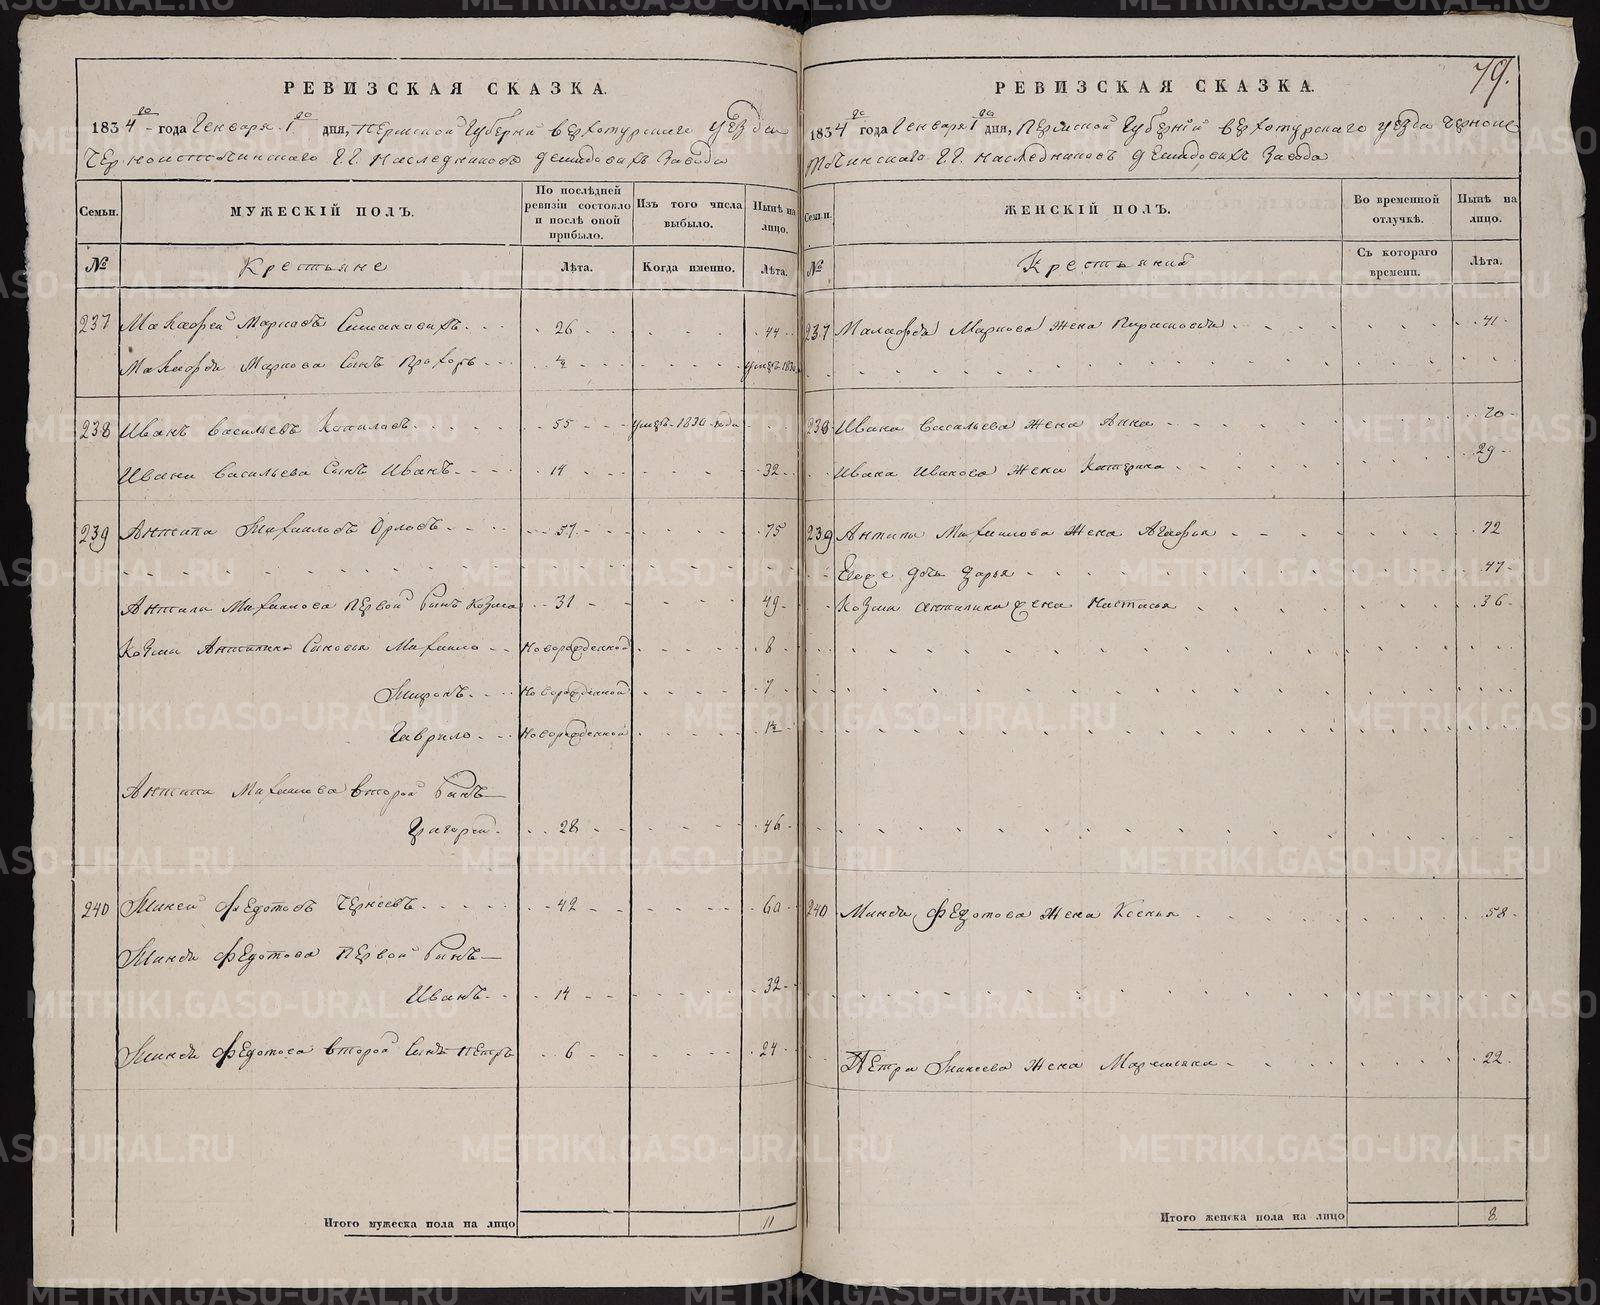 РЕВИЗСКАЯ СКАЗКА.
1834го года Генваря 1го дня, Пермской Губернии Верхотурскаго уезда
Черноисточинскаго Г.Г. Наследниковъ Демидовыхъ Завода
Семьи. МУЖЕСКІЙ ПОЛЪ. По послѣдней ревизіи состояло и послѣ оной прибыло. Изъ того числа выбыло. Нынѣ на лицо.
№ Крестьяне Лѣта. Когда именно. Лѣта.
237 Марковъ 26 44
Маркова Сынъ Прохоръ 4
238 Иванъ Васильевъ 55 умеръ 1830 года
Ивана Васильева Сынъ Иванъ 14 32
239 Антипа Михаиловъ Орловъ 57 75
Антипа Михаилова первой Сынъ Козма 31 49
Козмы Антипина Сыновья Михаило Новорожденной 8
Миронъ Новорожденной 7
Гаврило Новорожденной 1½
Антипа Михаилова второй Сынъ
Григорей 28 46
240 Миней Федотовъ 42 60
Минея Федотова первой Сынъ
Иванъ 14 32
Минея Федотова второй Сынъ Петръ 6 24
Итого мужеска пола на лицо 11
79.
РЕВИЗСКАЯ СКАЗКА.
1834го года Генваря 1го дня, Пермской Губерніи Верхотурскаго уезда Черноис
точинскаго Г.Г. Наследниковъ Демидовыхъ Завода
Семьи. ЖЕНСКІЙ ПОЛЪ. Во временной отлучкѣ. Нынѣ на лицо.
№ Съ котораго времени. Лѣта.
237 Маркова жена 41
238 Ивана Васильева жена Анна 70
Ивана Иванова жена Катерина 29
239 Антипы Михаилова жена Агафья 72
Его же дочь Дарья 47
Козмы Антипина жена Настасья 36
240 Минея Федотова жена Ксенья 58
Петра Минеева жена Маремьяна 22
Итого женска пола на лицо 8
METRIKI.GASO-URAL.RU